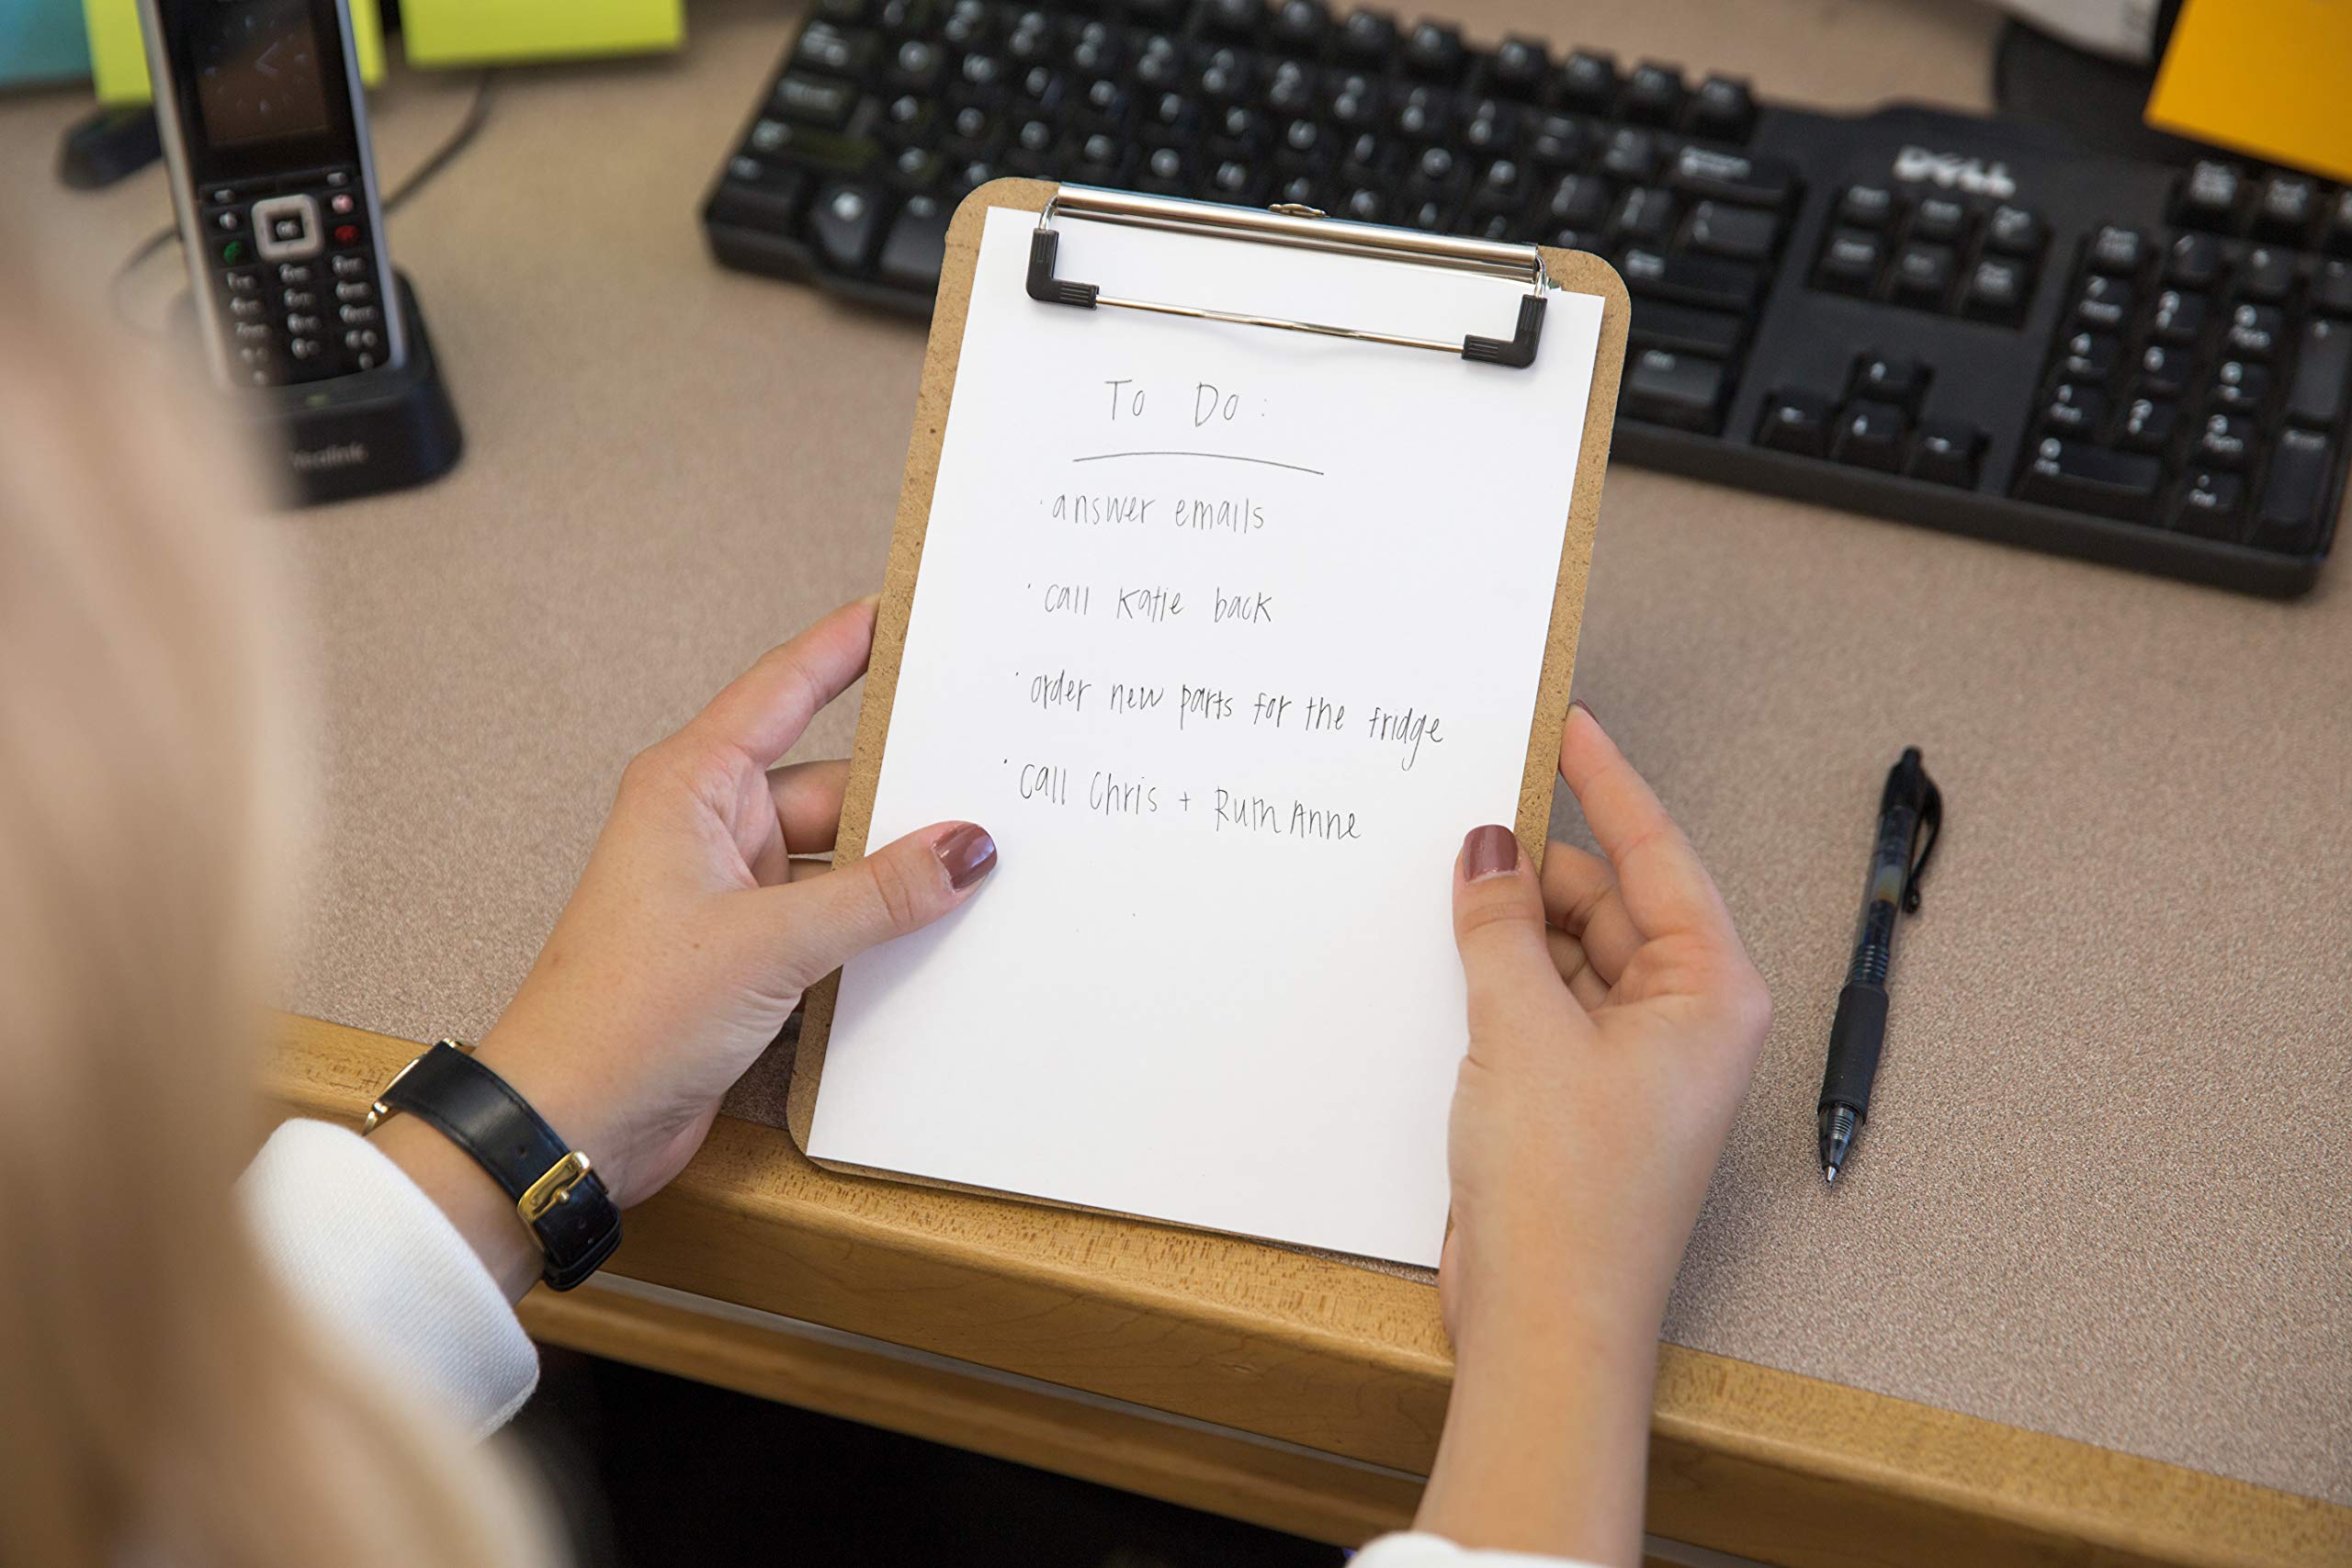 DELL
To Do:
· answer emails
· call Katie back
· order new parts for the fridge
· call Chris + Ruth Anne
Yealink